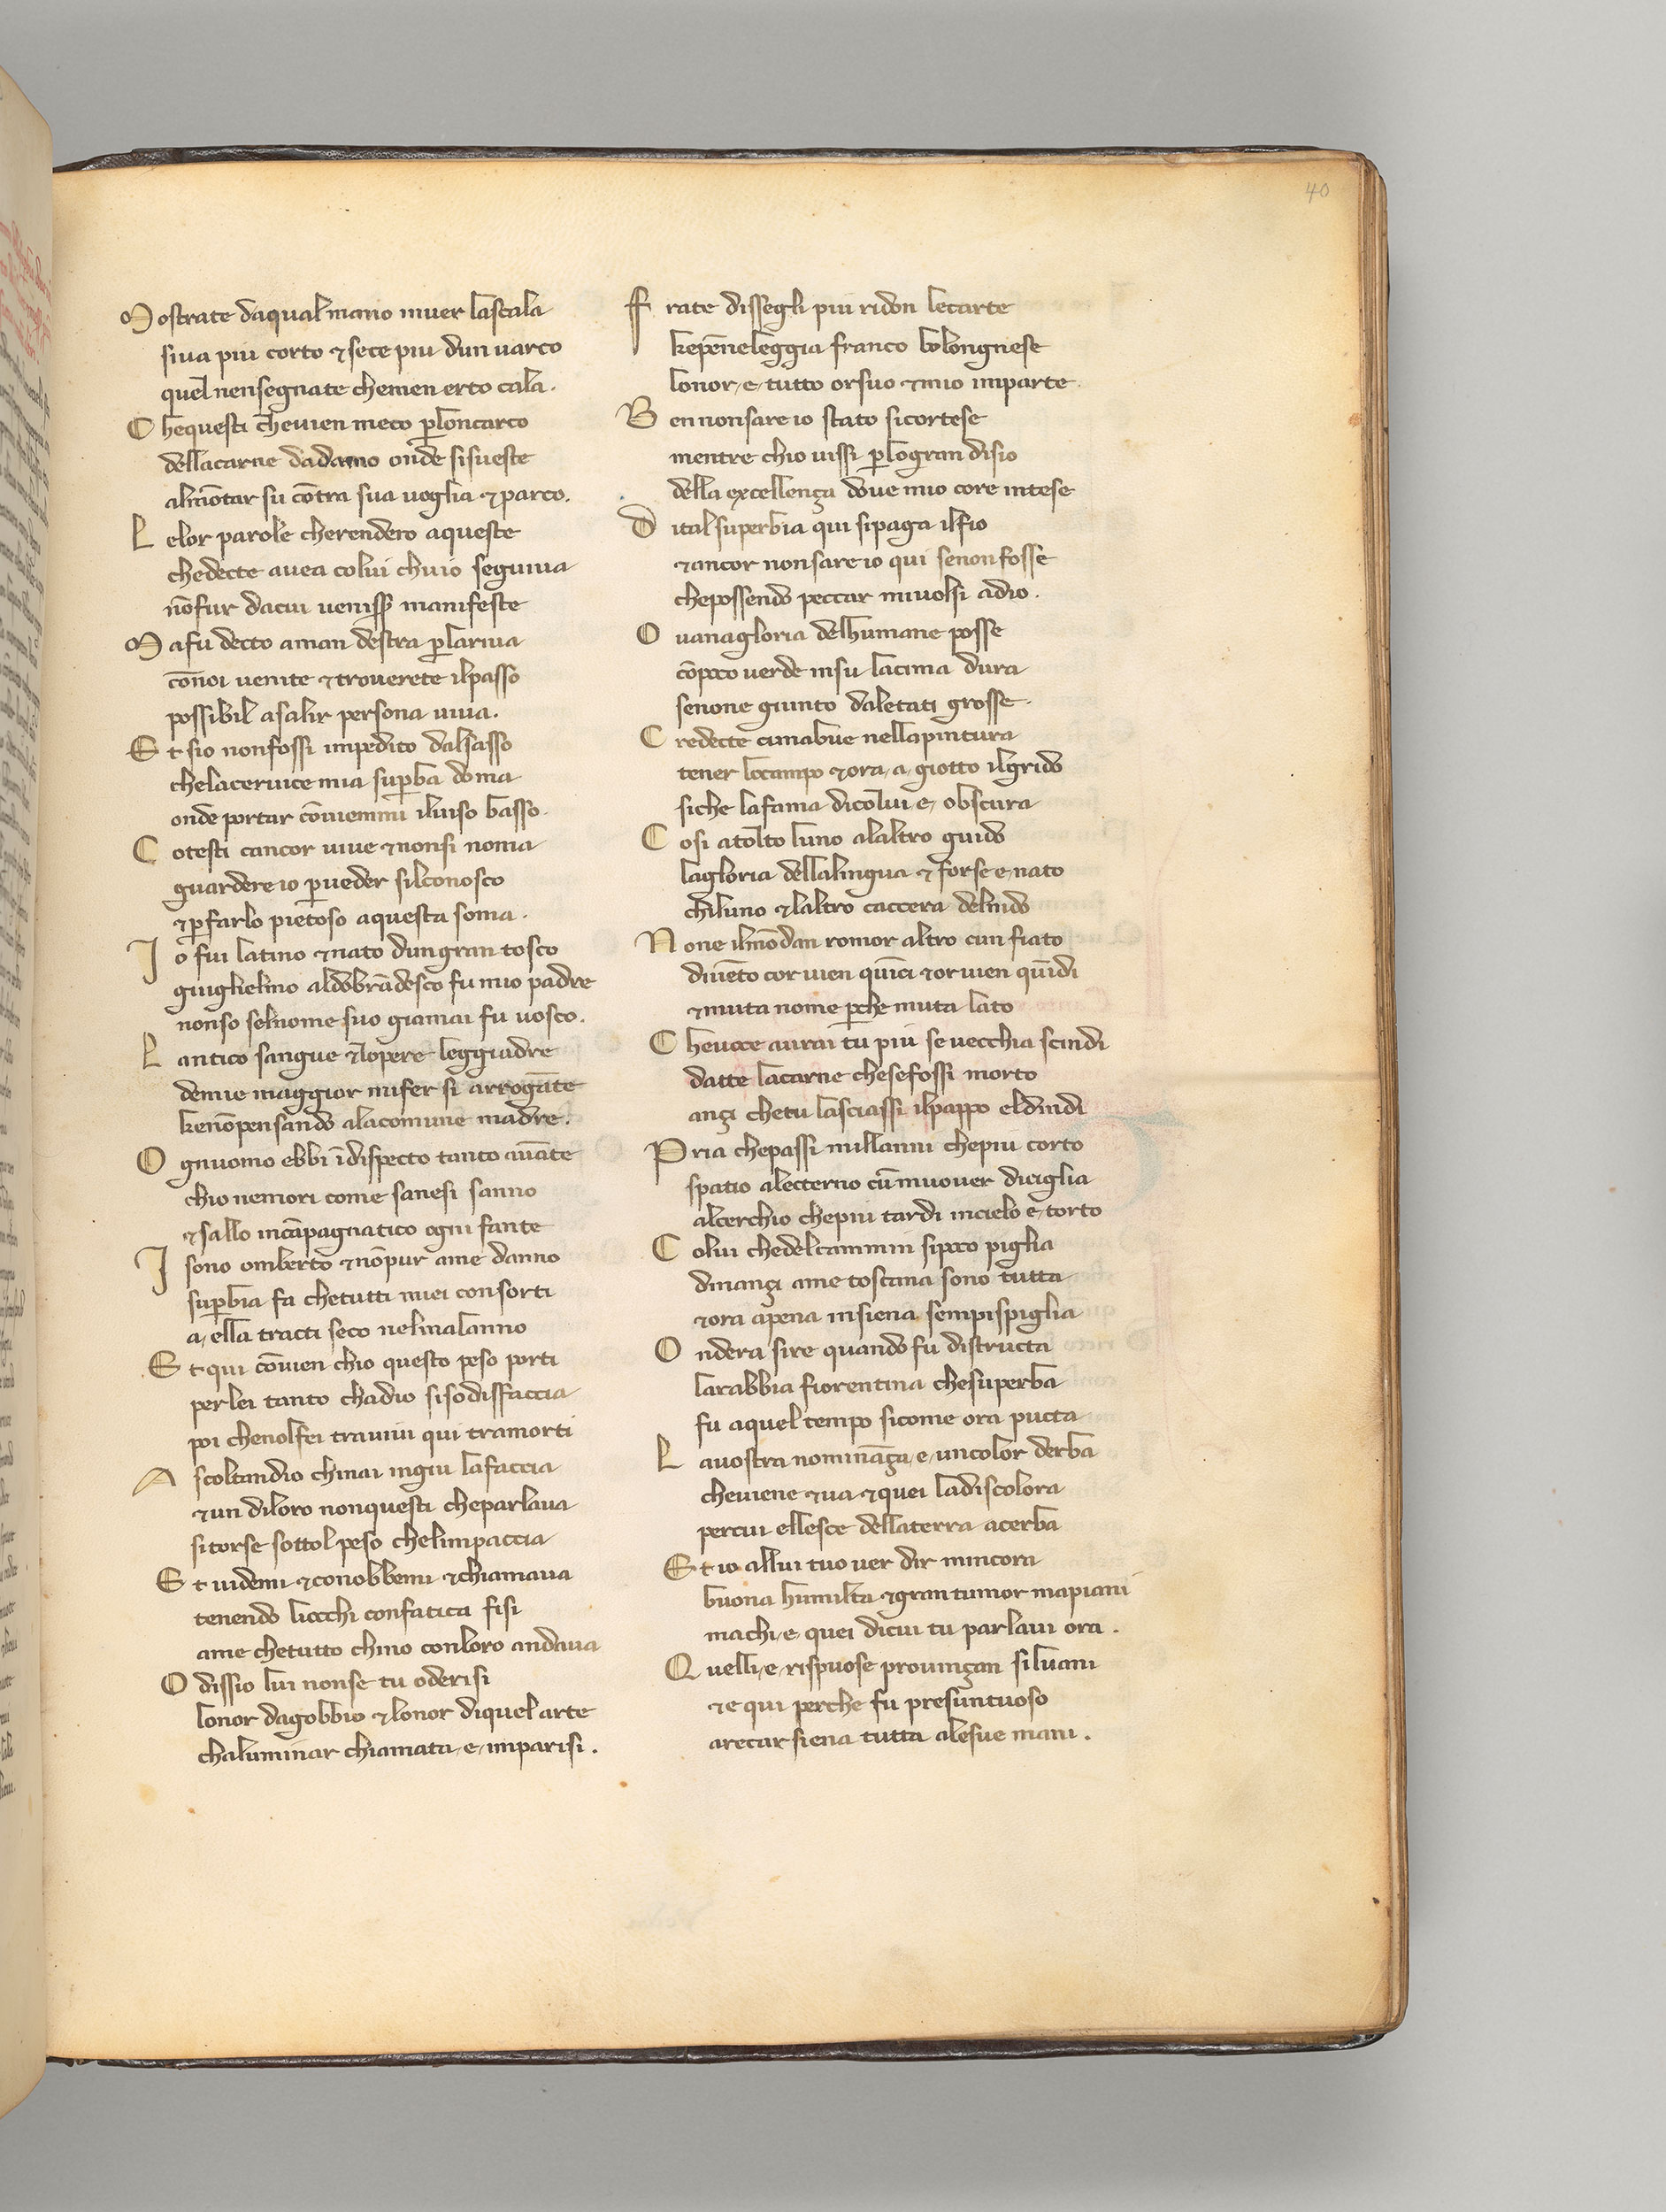 40
Mostrate daqual mano inuer lascala
siua piu corto ⁊ sece piu dun uarco
quel nensegnate chemen erto cala.
Chequesti cheuien meco ꝑloncarco
dellacarne dadamo onde sisueste
almōtar su cōtra sua uoglia ⁊ parco.
Lelor parole cherendero aqueste
chedecte auea colui chuio seguiua
nōfur dacui manifeste
Mafu decto aman destra ꝑlariua
cōnoi uenite ⁊ trouerete ilpasso
possibil asalir persona uiua.
Et sio nonfossi impedito dalsasso
chelaceruice mia suꝑba doma
onde portar cōuiemmi iluiso basso.
Cotesti cancor uiue ⁊ nonsi noma
guardere io ꝑueder silconosco
⁊ ꝑfarlo pietoso aquesta soma.
Io fui latino ⁊ nato dungran tosco
guiglielmo aldobrādesco fu mio padre
nonso selnome suo giamai fu uosco.
Lantico sangue ⁊ lopere leggiadre
demie maggior mifer si arrogāte
kenōpensando alacomune madre.
Ognuomo ebbi īdispecto tanto auāte
chio nemori come sanesi sanno
⁊ sallo incāpagnatico ogni fante
I sono omberto ⁊ nōpur ame danno
suꝑbia fa chetutti miei consorti
a ella tracti seco nelmalanno
Et qui cōuien chio questo peso porti
perlei tanto chadio sisodisfaccia
poi chenolfei trauiui qui tramorti
Ascoltandio chinai ingiu lafaccia
⁊ un diloro nonquesti cheparlaua
sitorse sottol peso chelimpaccia
Et uidemi ⁊ conobbemi ⁊ chiamaua
tenendo liocchi confatica fisi
ame chetutto chino conloro andaua
O dissio lui nonse tu oderisi
lonor dagobbio ⁊ lonor diquel arte
chaluminar chiamata e imparisi.
Frate dissegli piu ridon lecarte
kepēneleggia franco bolongnese
lonor e tutto orsuo ⁊ mio imparte.
Ben nonsare io stato sicortese
mentre chio uissi ꝑlogran disio
della excellença doue mio core intese
Dital superbia qui sipaga ilfio
⁊ ancor nonsare io qui senonfosse
chepossendo peccar miuolsi adio.
O uanagloria delhumane posse
cōpoco uerde insu lacima dura
senone giunto daletati grosse.
Credecte cimabue nellapintura
tener locampo ⁊ ora a giotto ilgrido
siche lafama dicolui e obscura
Cosi atolto luno alaltro guido
lagloria dellalingua ⁊ forse e nato
chiluno ⁊ laltro caccera delnido
None ilmōdan romor altro cun fiato
diuēto cor uien quīci ⁊ or uien quīdi
⁊ muta nome ꝑche muta lato
Cheuoce aurai tu piu se uecchia scindi
datte lacarne chesefossi morto
ançi chetu lasciassi ilpappo eldindi
Pria chepassi millanni chepiu corto
spatio alecterno cūmuouer diciglia
alcerchio chepiu tardi incielo e torto
Colui chedelcammin sipoco piglia
dinançi ame toscana sono tutta
⁊ ora apena insiena sempispiglia
Ondera sire quando fu distructa
larabbia fiorentina chesuperba
fu aquel tempo sicome ora pucta
Lauostra nomināça e uncolor derba
cheuiene ⁊ ua ⁊ quei ladiscolora
percui ellesce dellaterra acerba
Et io allui tuo uer dir mincora
buona humilta ⁊ gran tumor mapiani
machi e quei dicui tu parlaui ora.
Quelli e rispuose prouinçan siluani
⁊ e qui perche fu presuntuoso
arecar siena tutta alesue mani.